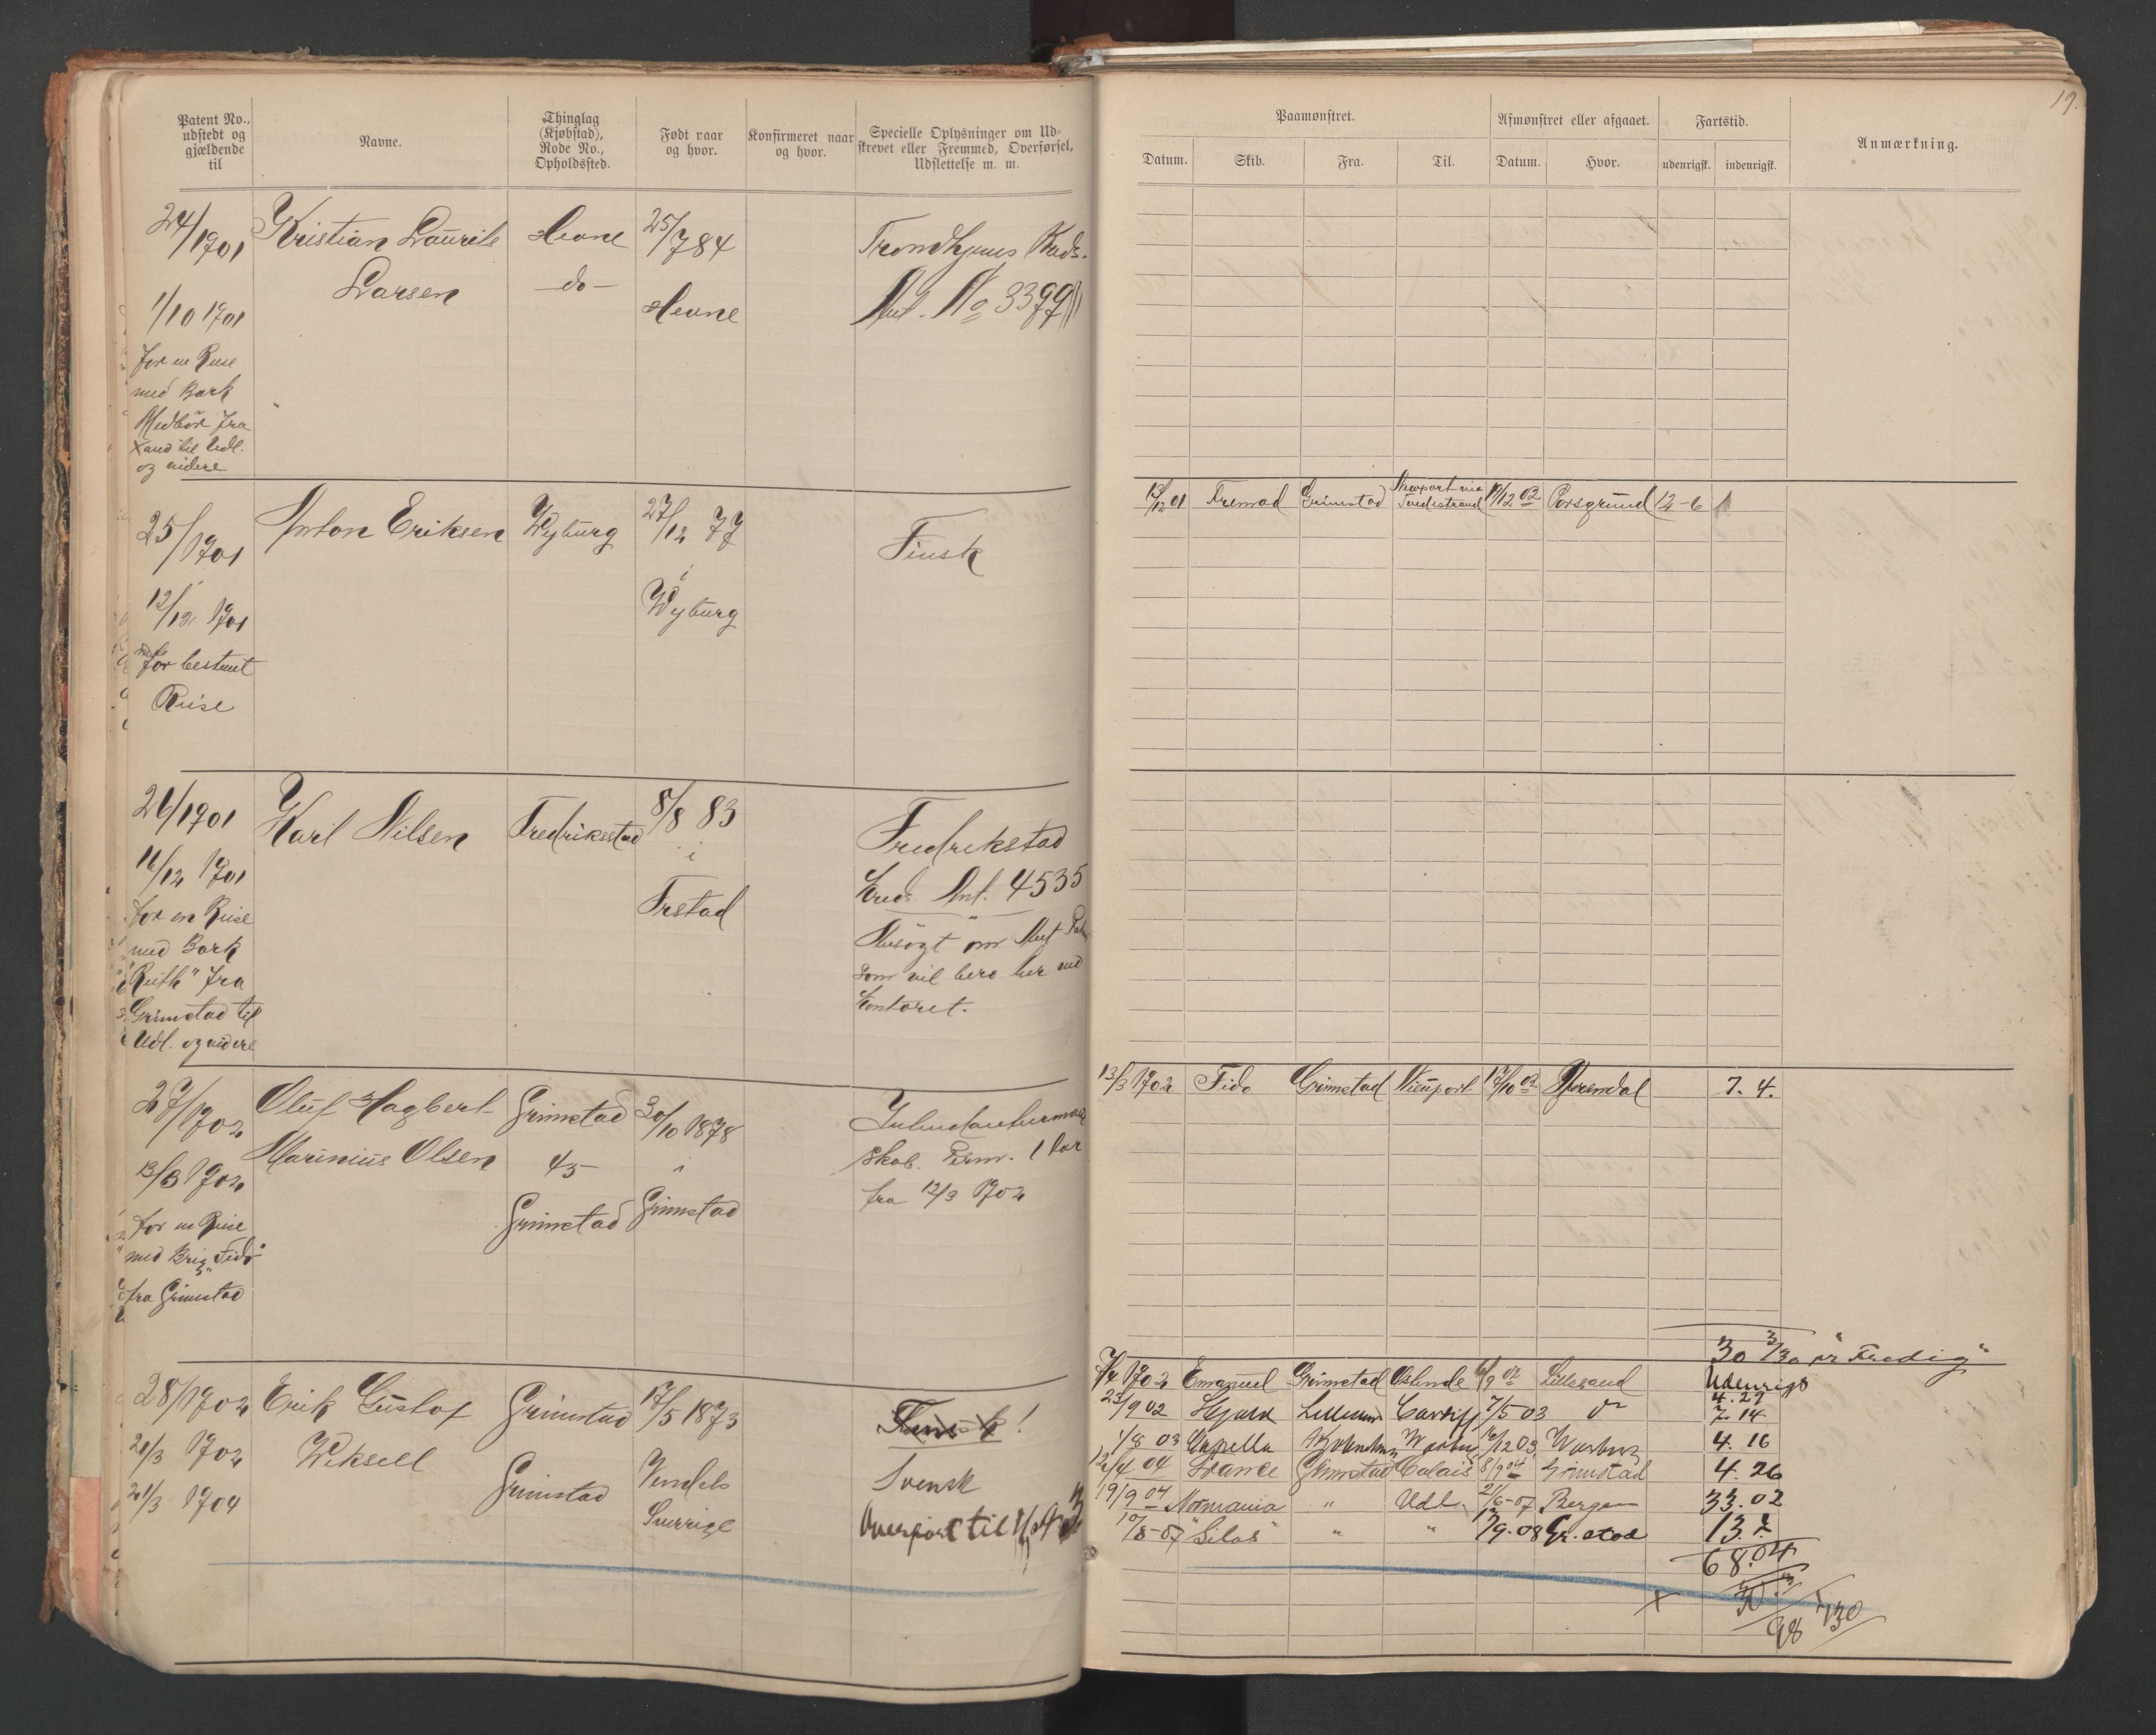 Patent No.,
udstedt og
gjældende
til
Navne.
Thinglag
(Kjøbstad),
Rode No.,
Opholdssted.
Født naar
og hvor.
Konfirmeret naar
og hvor.
Specielle Oplysninger om Ud-
skrevet eller Fremmed, Overførsel,
Udslettelse m. m.
24/1901
1/10 1901
for en Reise
med Bark
Medbør fra
Xand til Udl.
og videre
Kristian Laurits
Larsen
Hevne
-do-
25/7 84
Hevne
Trondhjems Kreds.
Anf. No 3399
25/1901
12/12 1901
for bestemt
Reise
Anton Eriksen
Wyburg
27/12 77
i
Wyburg
Finsk
26/1901
16/12 1901
for en Reise
med Bark
"Ruth" fra
Grimstad til
Udl. og videre
Karl Nilsen
Fredriksstad
8/8 83
i
Frstad
Fredrikstad
Kreds Ant. 4535
Ansøgt om
som vil bero her ved
Kontoret.
27/1902
13/3 1902
for en Reise
med Brig "Fido"
fra Grimstad
Oluf Hagbert
Marinius Olsen
Grimstad
45
Grimstad
30/10 1878
i
Grimstad
skab. Perm. 1 Aar
fra 12/3 1902
28/1902
21/3 1902
21/3 1904
Erik Gustof
Wiksell
Grimstad
Grimstad
17/5 1873
Vendels
Sverrige
Finsk !
Svensk
Overført til
19.
Paamønstret.
Afmønstret eller afgaaet.
Fartstid.
Anmærkning.
Datum.
Skib.
Fra.
Til.
Datum.
Hvor.
udenrigsk.
indenrigsk.
13/12 01 Fremad Grimstad Newport via Tvedestrand 19/12 02 Porsgrund 12-6
13/3 1902 Fido Grimstad Nieuport 17/10 02 Arendal 7. 4.
30 3/30 pr "Fredig"
7/4 1902 Emanuel Grimstad Ostende 6/9 02 Lillesand Udenrigs
4. 29
23/9 02 Hjard Lillesand Cardiff 7/5 03 do 7. 14
1/8 03 Capella 16/12 03 Warberg 4. 16
12/4 04 France Grimstad Calais 8/9 04 Grimstad 4. 26
19/9 04 Normania " Udl. 21/6-07 Bergen 33. 02
10/8-07 "Silas" " " 17/9-08 Gr.stad 13. 7
68. 04
98 7/30